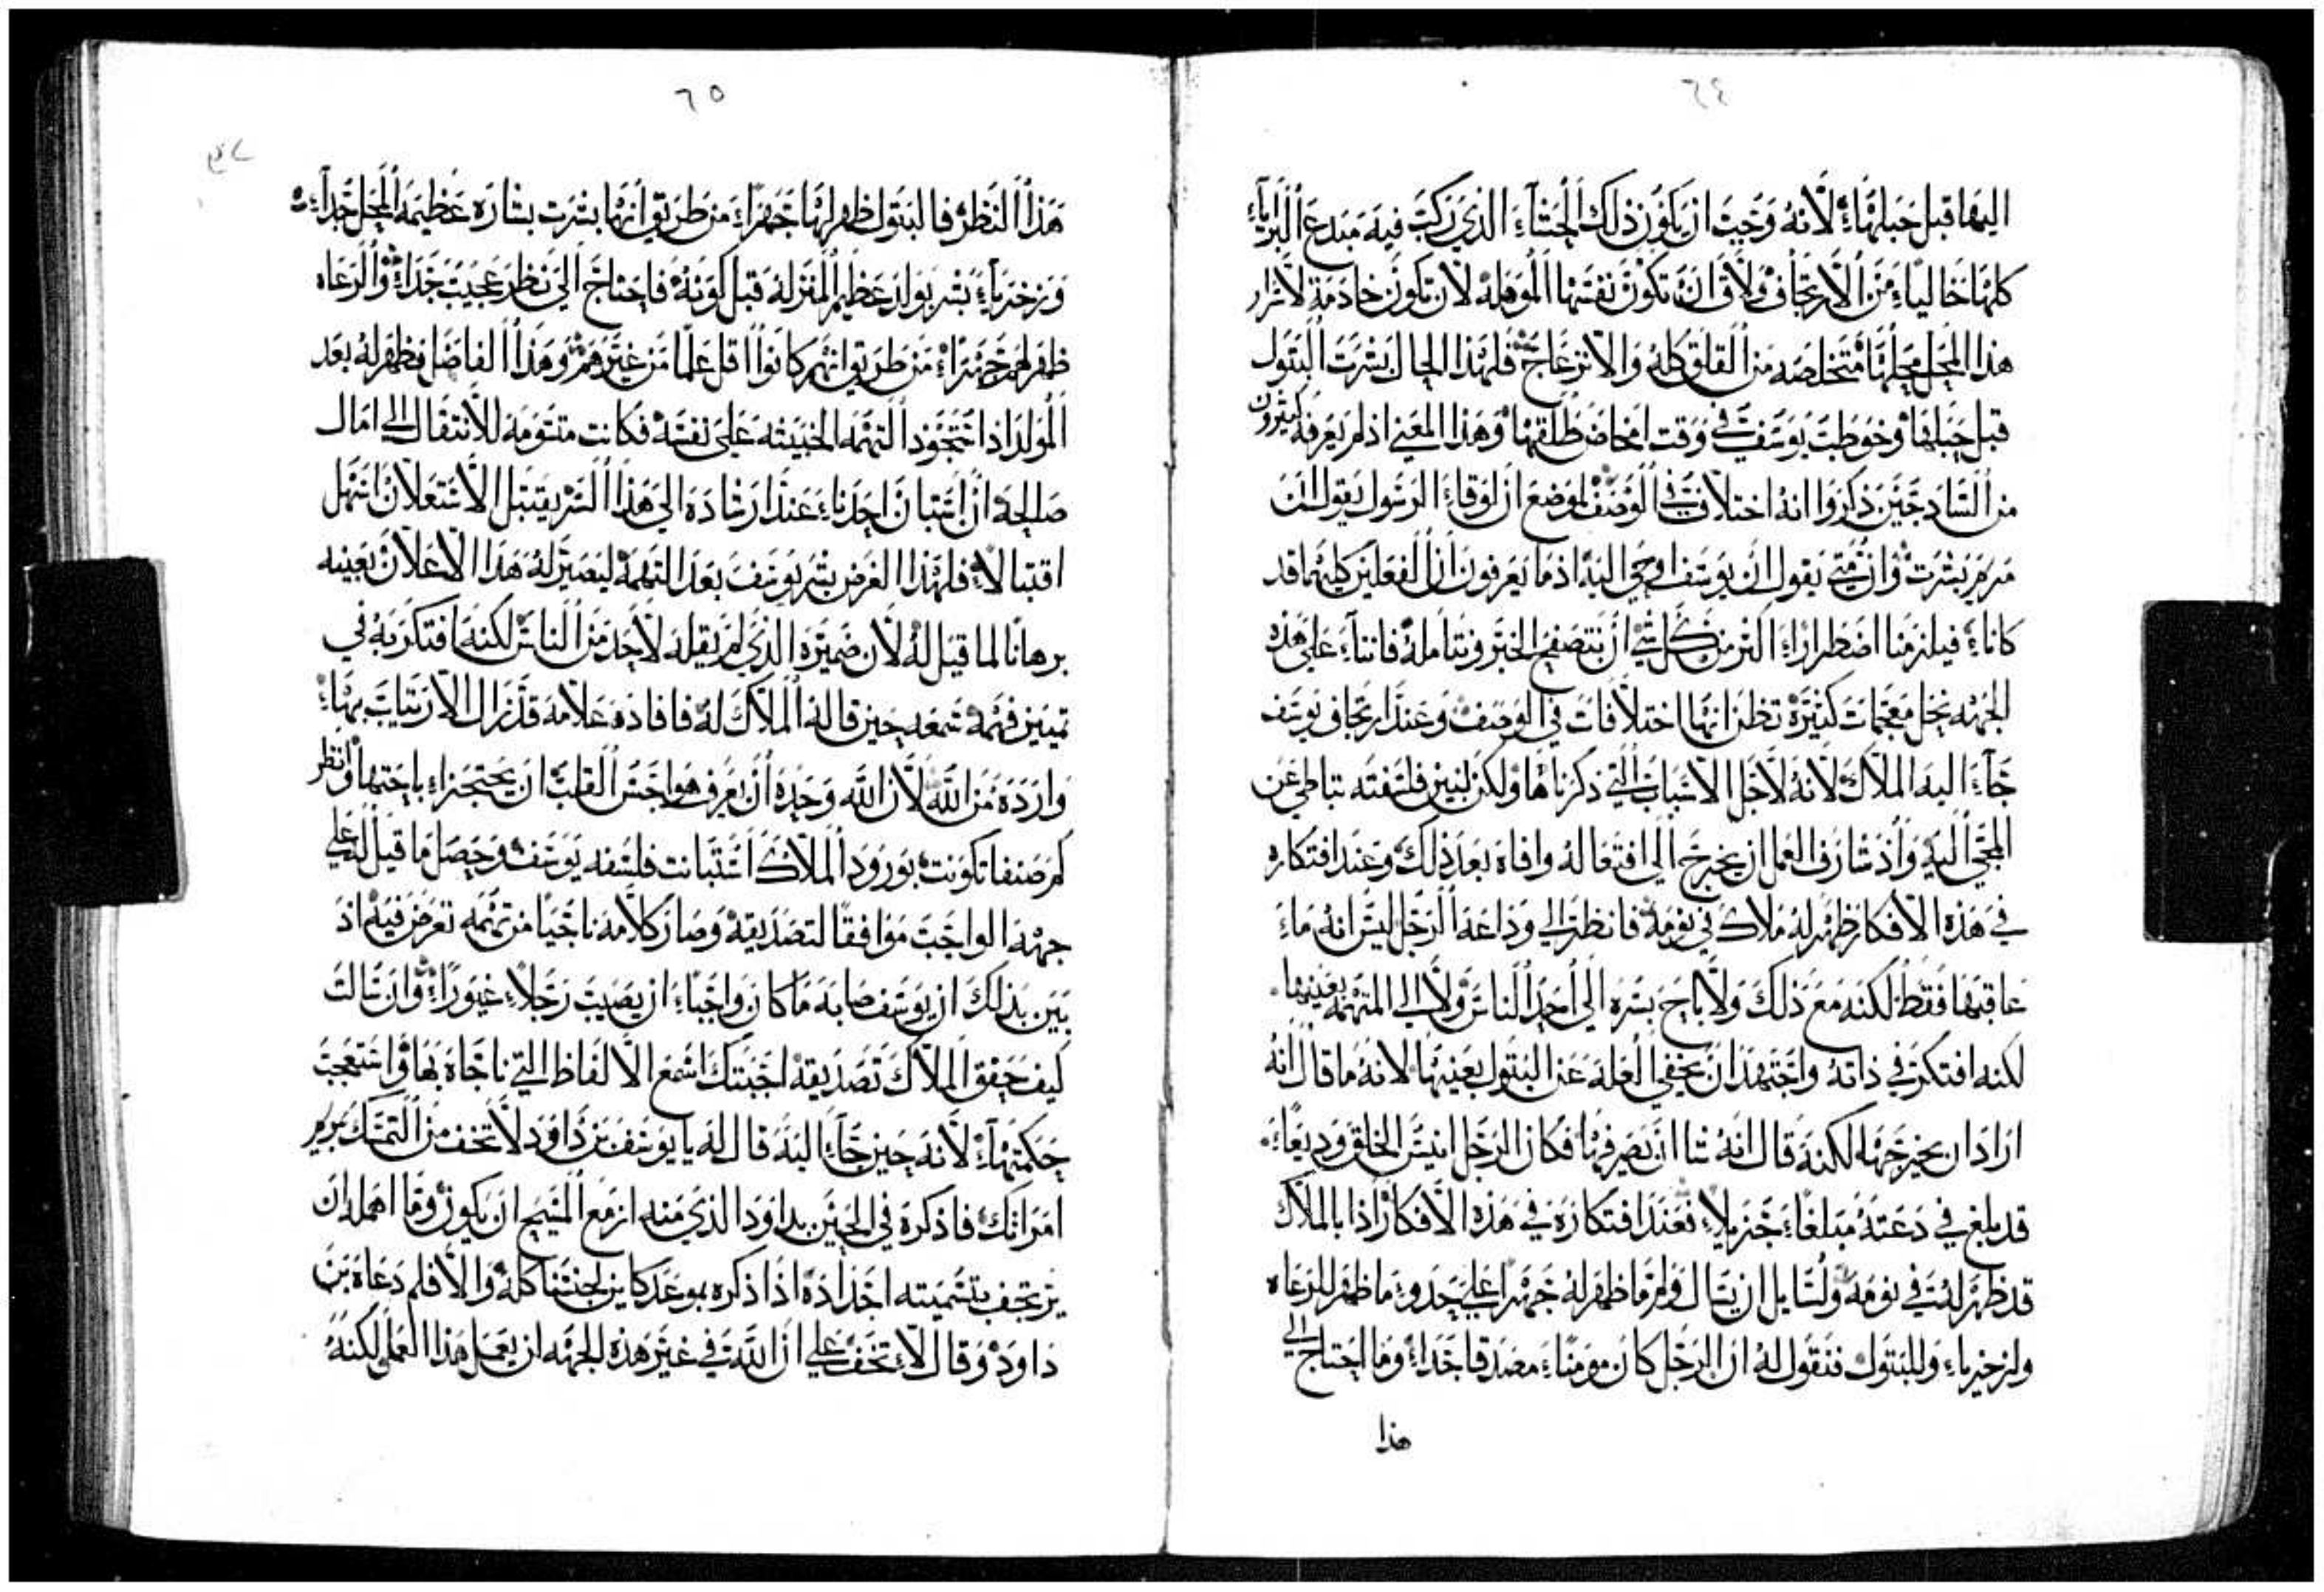 ٦٤
اليها قبل حبلها لانه وجب ان يكون ذلك الحشاء الذي ركب فيه مبدع البرايا
كلها خاليا من الارتجاف ولاق ان تكون نفسها الموهله لان تكون خادمة لاسرار
هذا المحل محلها متخلصه من القلق كله والانزعاج فلهذا الحال بشرت البتول
قبل حبلها وخوطب يوسف في وقت امخاض طلقها وهذا المعني اذ لم يعرفه كثيرون
من السادجين ذكروا انه اختلاف في الوصف لموضع ان لوقا الرسول يقول ان
مريم بشرت وان متي يقول ان يوسف اوحي اليه اذ ما يعرفون ان الفعلين كليهما قد
كانا فيلزمنا اضطرارا اكثر من كل شي ان نتصفح الخبر ونتامله فاننا علي هذه
الجهه نحل معجمات كثيرة تظن انها اختلافات في الوصف وعند ارتجاف يوسف
جآء اليه الملاك لانه لاجل الاسباب التي ذكرناها ولكن لتبين فلسفته تباطي عن
المجي اليه واذ شارف العمل ان يخرج الي افتعاله وافاه بعد ذلك وعند افتكاره
في هذه الافكار ظهر له ملاك في نومه فانظر الي وداعة الرجل ليس انه ما
عاقبها فقط لكنه مع ذلك ولا باح بسره الي احد الناس ولا الي المتهمه بعينها
لكنه افتكر في ذاته واجتهد ان يخفي العله عن البتول بعينها لانه ما قال انه
اراد ان يخرجها لكنه قال انه شا ان يصرفها فكان الرجل انيس الخلق وديعا
قد بلغ في دعته مبلغا جزيلا فعند افتكاره في هذه الافكار اذا بالملاك
قد ظهر له في نومه ولسايل ان يسال ولم ما ظهر له جهرا علي حدو ما ظهر للرعاه
ولزخريا وللبتول فنقول له ان الرجل كان مومنا مصدقا جدا وما احتاج الي
هذا
٦٥
هذا النظر فالبتول ظهر لها جهرا من طريق انها بشرت بشاره عظيمه المحل جدا
وزخريا بشر بولد عظيم المنزله قبل كونه فاحتاج الي نظر عجيب جدا والرعاه
ظهر لهم جهرا من طريق انهم كانوا اقل علما من غيرهم وهذا الفاضل فظهر له بعد
المولد اذ استحوذ التهمه الخبيثه علي نفسه فكانت متسومه للانتقال الي امال
صالحه ان استبان احدنا عند ارشاده الي هذا السر يقتبل الاستعلان اسهل
اقتبالا فلهذا الغرض بشر يوسف بعد التهمه ليصير له هذا الاعلان بعينه
برهانا لما قيل له لان ضميره الذي لم يقله لاحد من الناس لكنه افتكر به في
تمييز فهمه سمعه حين قاله الملاك له فافاده علامه قد زال الارتياب بها
وارده من الله لان الله وحده ان يعرف هواجس القلب ان يحتجزا باحتها وانظر
كم صنفا تكونت بورود الملاك استبانت فلسفه يوسف وحصل ما قيل له علي
جهة الواجب موافقا لتصديقه وصار كلامه ناجيا من تهمه تعرض فيه اذ
بين بذلك ان يوسف صابه ما كان واجبا ان يصيب رجلا غيورا وان سالت
كيف حقق الملاك تصديقه اجبتك اسمع الالفاظ التي ناجاه بها واستعجب
حكمتها لانه حين جآء اليه قال له يا يوسف بن داوود لا تخف من التمسك بمريم
امراتك فاذكره في الحين بداود الذي منه ازمع المسيح ان يكون وما اهمله ان
يرتجف بتسميته اجداده اذا ذكره بموعد كاين لجنسنا كله والا فلم دعاه بن
داود وقال لا تخف علي ان الله في غير هذه الجهه ان يعمل هذا العمل لكنه